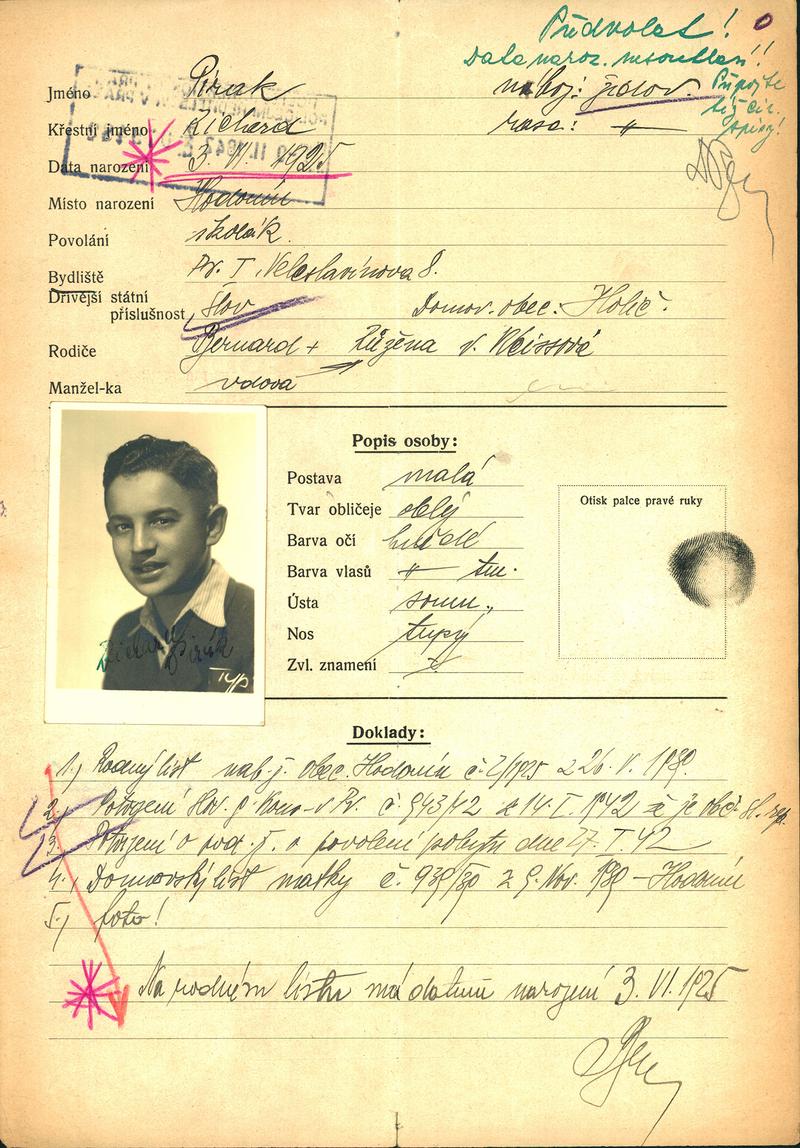 Předvolat!
Data naroz. nesouhlasí!!
Připojte
též čís.
spisy!
Jméno Pirak nábož: židov.
Křestní jméno Richard rasa: -"-
Data narození 3. VI. 1925
Místo narození Hodonín
Povolání školák.
Bydliště Pr. I, Veleslavínova 8.
Dřívější státní
příslušnost Slov Domov. obec. Holič.
Rodiče Bernard + Růžena r. Weissová
Manžel-ka vdova
Popis osoby:
Postava malá
Tvar obličeje oblý
Barva očí hnědé
Barva vlasů -"- tm.
Ústa soum.,
Nos tupý
Zvl. znamení
Otisk palce pravé ruky
Richard Pirák
Doklady:
1.) Rodný list náb. ž. obec. Hodonín č. 2/1925 z 26. V. 1939.
2.) Potvrzení Slov. g. Kons. v Pr. č. 943/42 z 14. I. 1942 že je obč. sl. rep.
3.) Potvrzení o pod. ž. o povolení pobytu dne 27. I. 42
4.) Domovský list matky č. 939/30 z 9. Nov. - Hodonín
5.) foto!
Na rodném listu má datum narození 3. VI. 1925